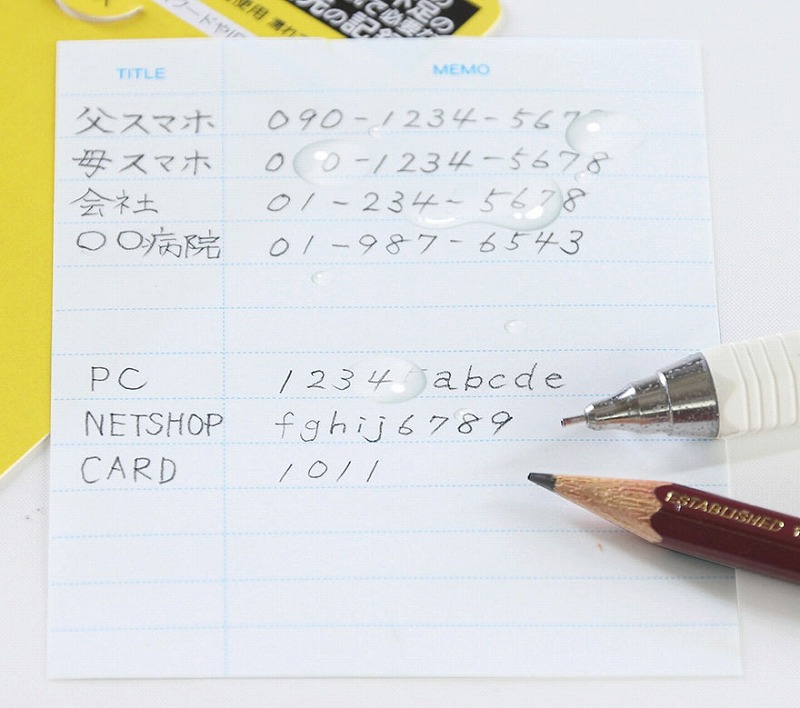 TITLE MEMO
父スマホ 090-1234-567
母スマホ 0 0-1234-5678
会社 01-234-5678
〇〇病院 01-987-6543
PC 1234 abcde
NETSHOP fghij6789
CARD 1011
ESTABLISHED